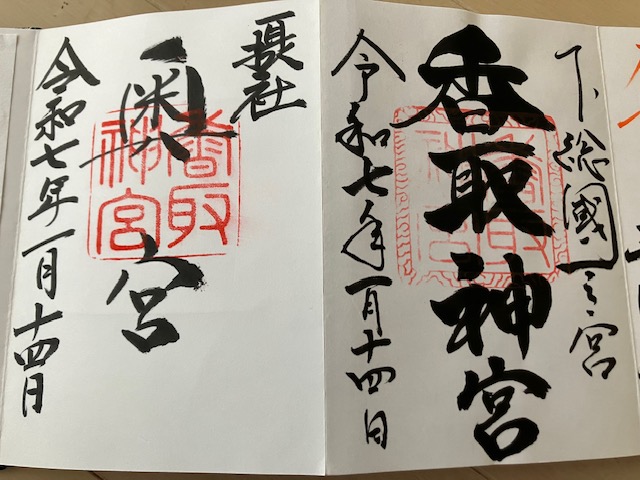 下総國一之宮
香取神宮
香取神宮
令和七年一月十四日
摂社
奥宮
香取神宮
令和七年一月十四日